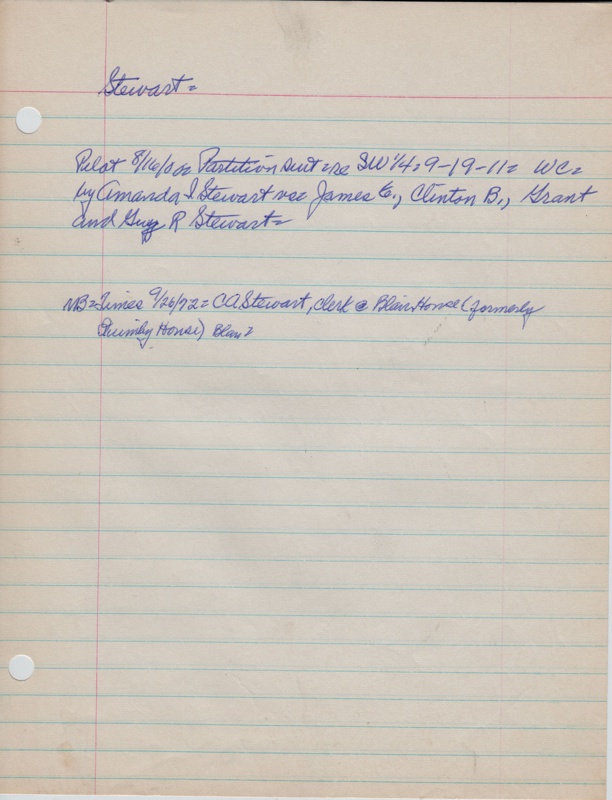 Stewart=
Pilot 8/16/00= Partition suit=re SW 1/4=9-19-11= WC=
by Amanda I Stewart vs= James E., Clinton B., Grant
and Guy R Stewart=
NB=Times 9/26/72= CA Stewart, clerk @ Blair House (formerly
Quimby House) Blair=